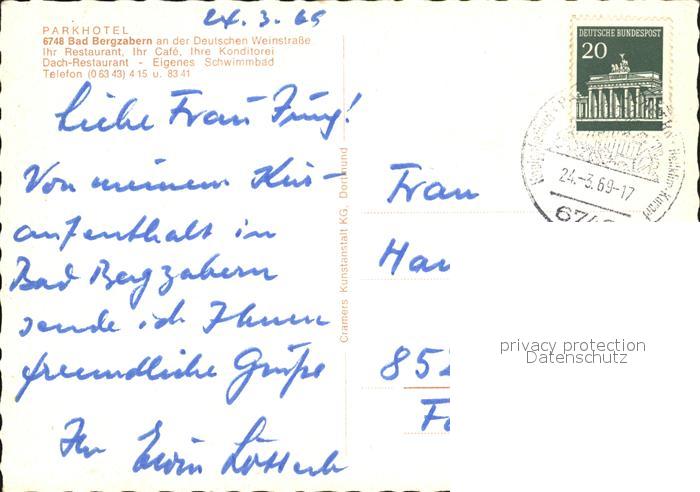 24.3.69
PARKHOTEL
6748 Bad Bergzabern an der Deutschen Weinstraße
Ihr Restaurant, Ihr Café, Ihre Konditorei
Dach-Restaurant - Eigenes Schwimmbad
Telefon (0 63 43) 4 15 u. 83 41
Liebe Frau Jung!
Von meinem Kur-
aufenthalt in
Bad Bergzabern
sende ich Ihnen
freundliche Grüße
Ihr Erwin
Cramers Kunstanstalt KG, Dortmund
DEUTSCHE BUNDESPOST
20
24.-3.69-17
674
Frau
Han
852
privacy protection
Datenschutz